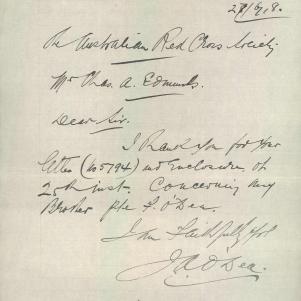 27/6/18.
The Australian Red Cross Society
Mr Chas. A. Edmunds.
Dear Sir.
I thank you for your
letter (No 5794) and Enclosures of
25th inst. Concerning my
Brother Pte F. O'Dea.
I am Faithfully yrs
J A O'Dea.